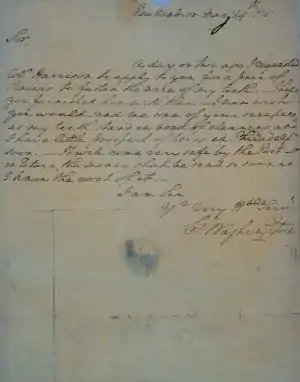 New Windsor May 29th 1781
Sir
A day or two ago I requested
Colo. Harrison to apply to you for a pair of
Pincers to fasten the wire of my teeth. — I hope
you furnished him with them. — I now wish
you would send me one of your scrapers
as my teeth stand in need of cleaning, and
I have little prospect of being in Philadelph.
soon. — It will come very safe by the Post — &
in return, the money shall be sent so soon as
I know the cost of it. —
I am Sir
Yr Very Hble Servt
G. Washington